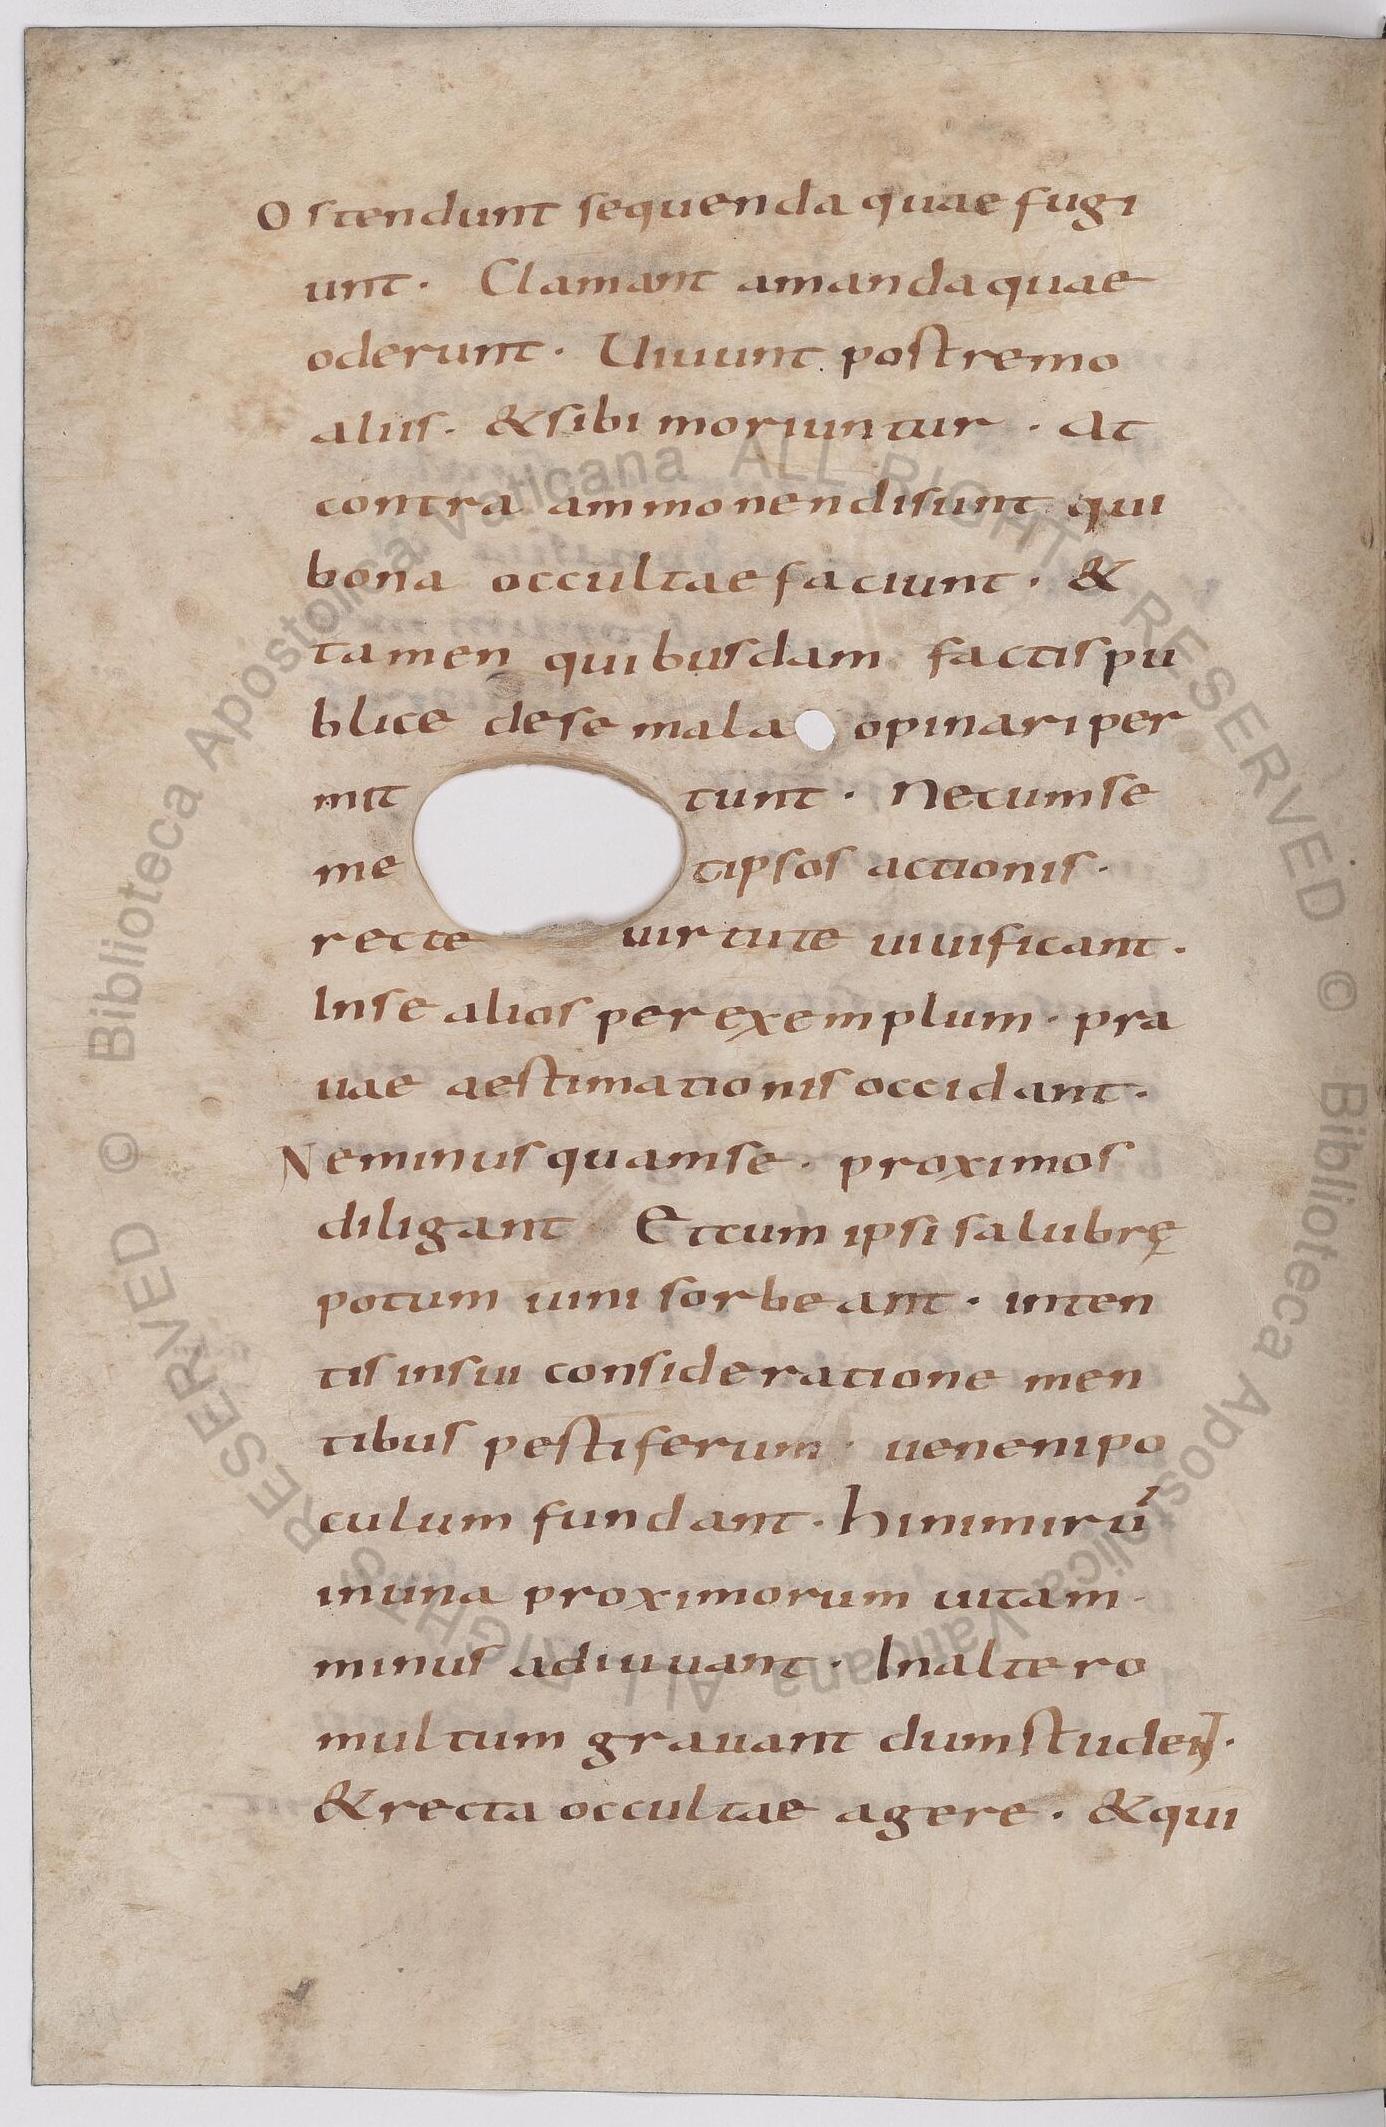 Ostendunt sequenda quae fugi
unt. Clamant amanda quae
oderunt. Uiuunt postremo
aliis. & sibi moriuntur. At
contra ammonendi sunt qui
bona occultae faciunt. &
tamen quibusdam factis pu
blice de se mala opinari per
mit tunt. Ne cum se
me tipsos actionis.
recte uirtute uiuificant.
In se alios per exemplum. pra
uae aestimationis occidant.
Ne minus quam se. proximos
diligant Et cum ipsi salubrę
potum uini sorbeant. inten
tis in sui consideratione men
tibus pestiferum. ueneni po
culum fundant. hi nimirū
in una proximorum uitam.
minus adiuuant. In altero
multum grauant dum student.
& recta occultae agere. & qui
© Biblioteca Apostolica Vaticana ALL RIGHTS RESERVED
© Biblioteca Apostolica Vaticana ALL RIGHTS RESERVED